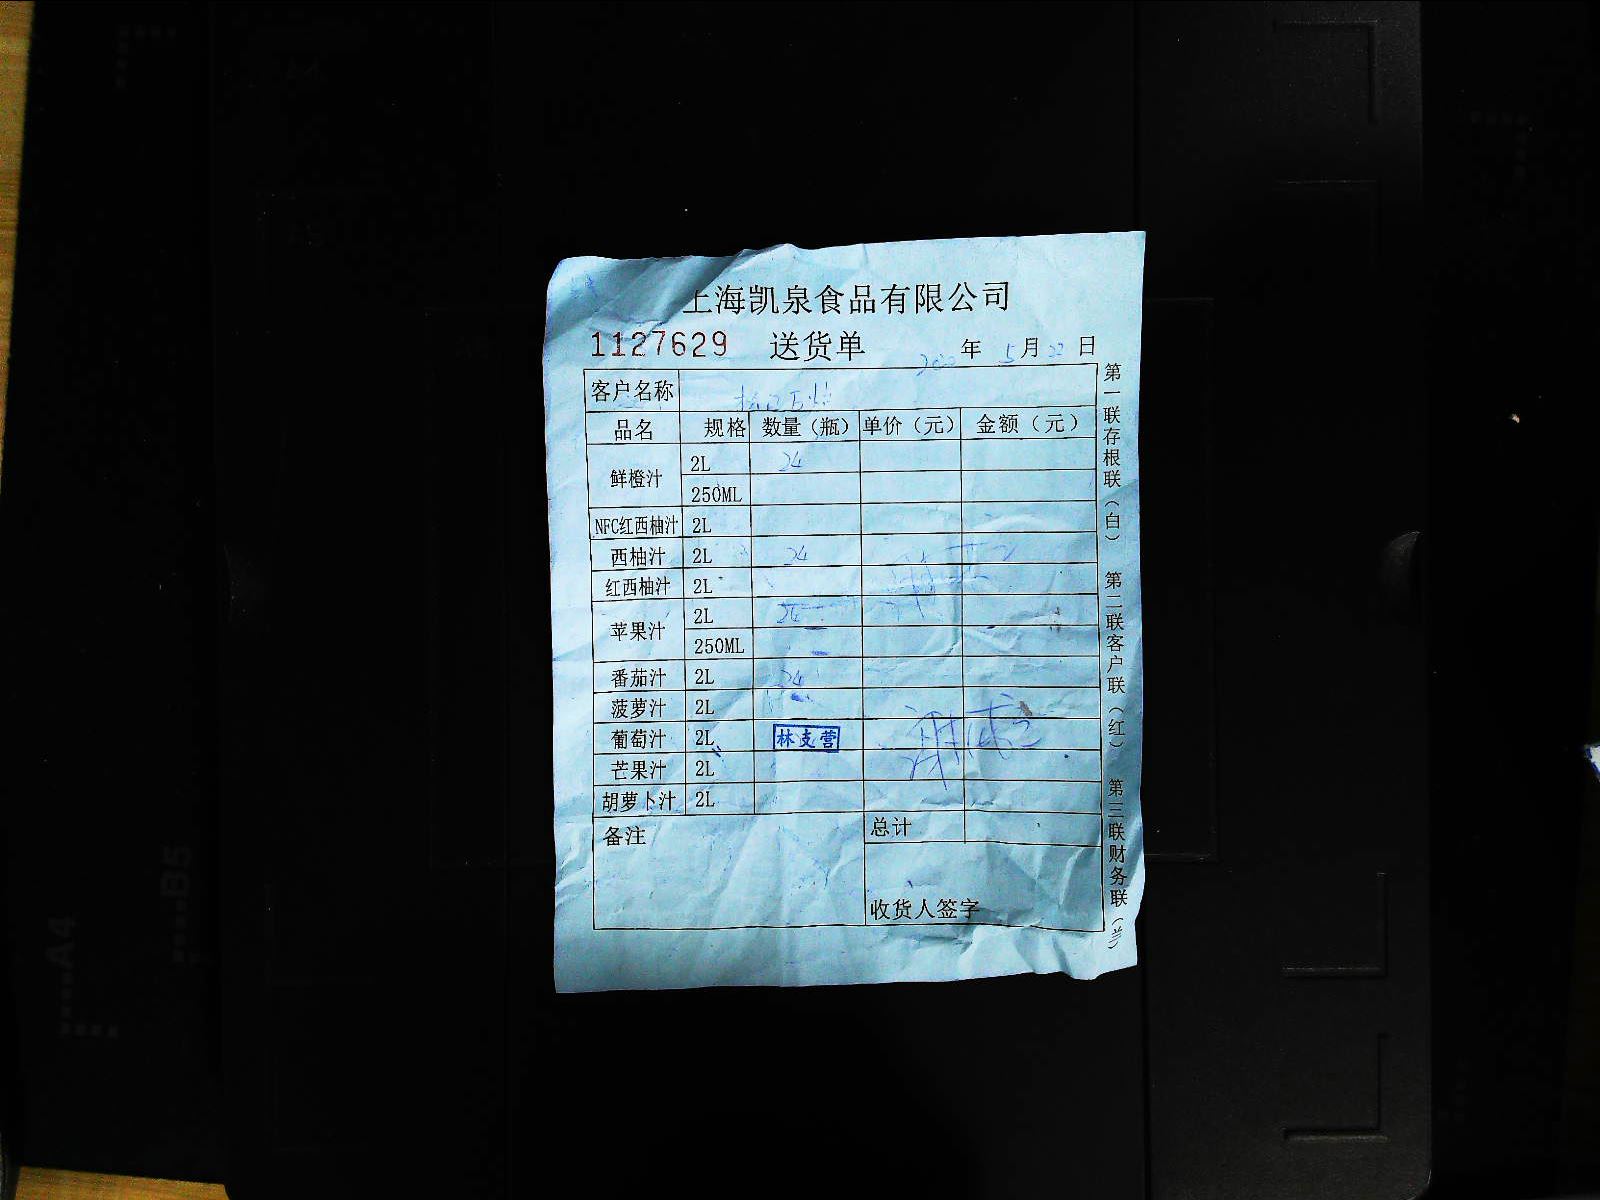 上海凯泉食品有限公司
1127629 送货单 年 5月22日
客户名称
品名 规格 数量（瓶） 单价（元） 金额（元）
鲜橙汁 2L 24
250ML
NFC红西柚汁 2L
西柚汁 2L 24
红西柚汁 2L
苹果汁 2L 24
250ML
番茄汁 2L 24
菠萝汁 2L
葡萄汁 2L 林支营
芒果汁 2L
胡萝卜汁 2L
备注 总计
收货人签字
第一联存根联（白） 第二联客户联（红） 第三联财务联（兰）
A4
B5